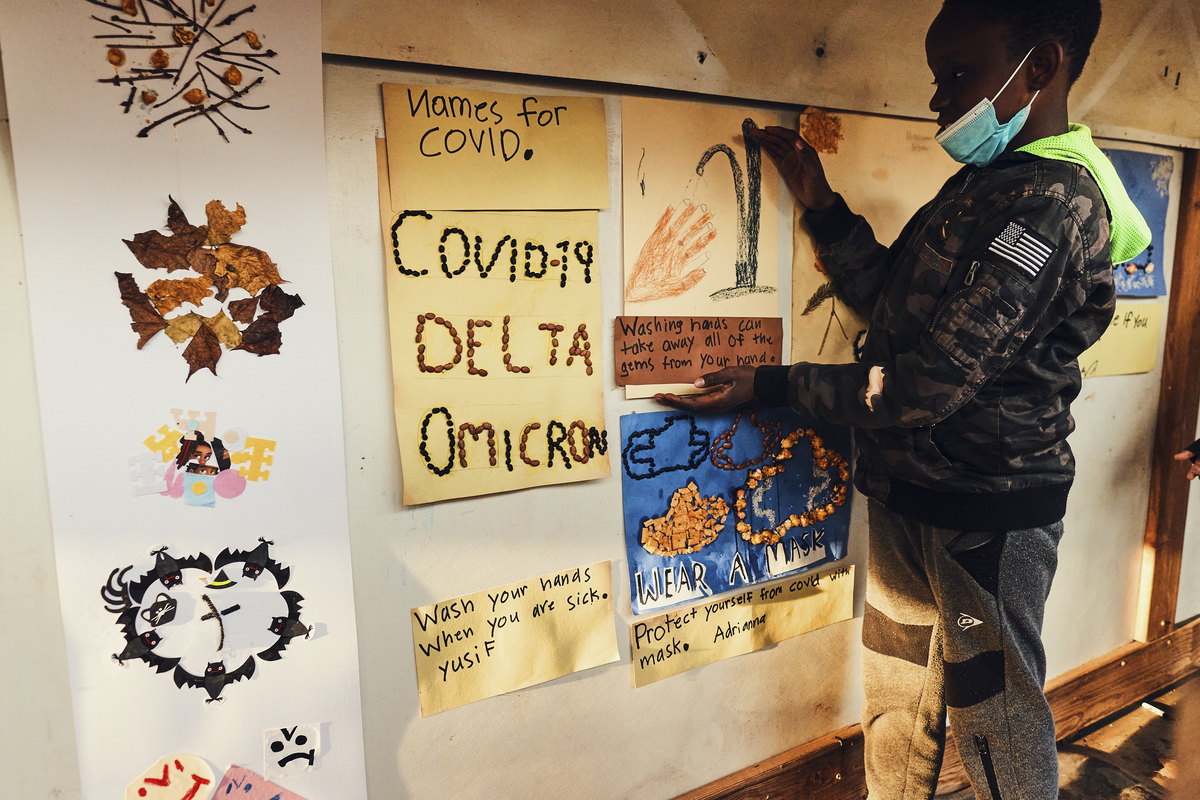 Names for
COVID.
COVID-19
DELTA
OMICRON
Wash your hands
when you are sick.
yusiF
Washing hands can
take away all of the
gems from your hand.
WEAR A MASK
Protect yourself from covid with
mask. Adrianna
e if you